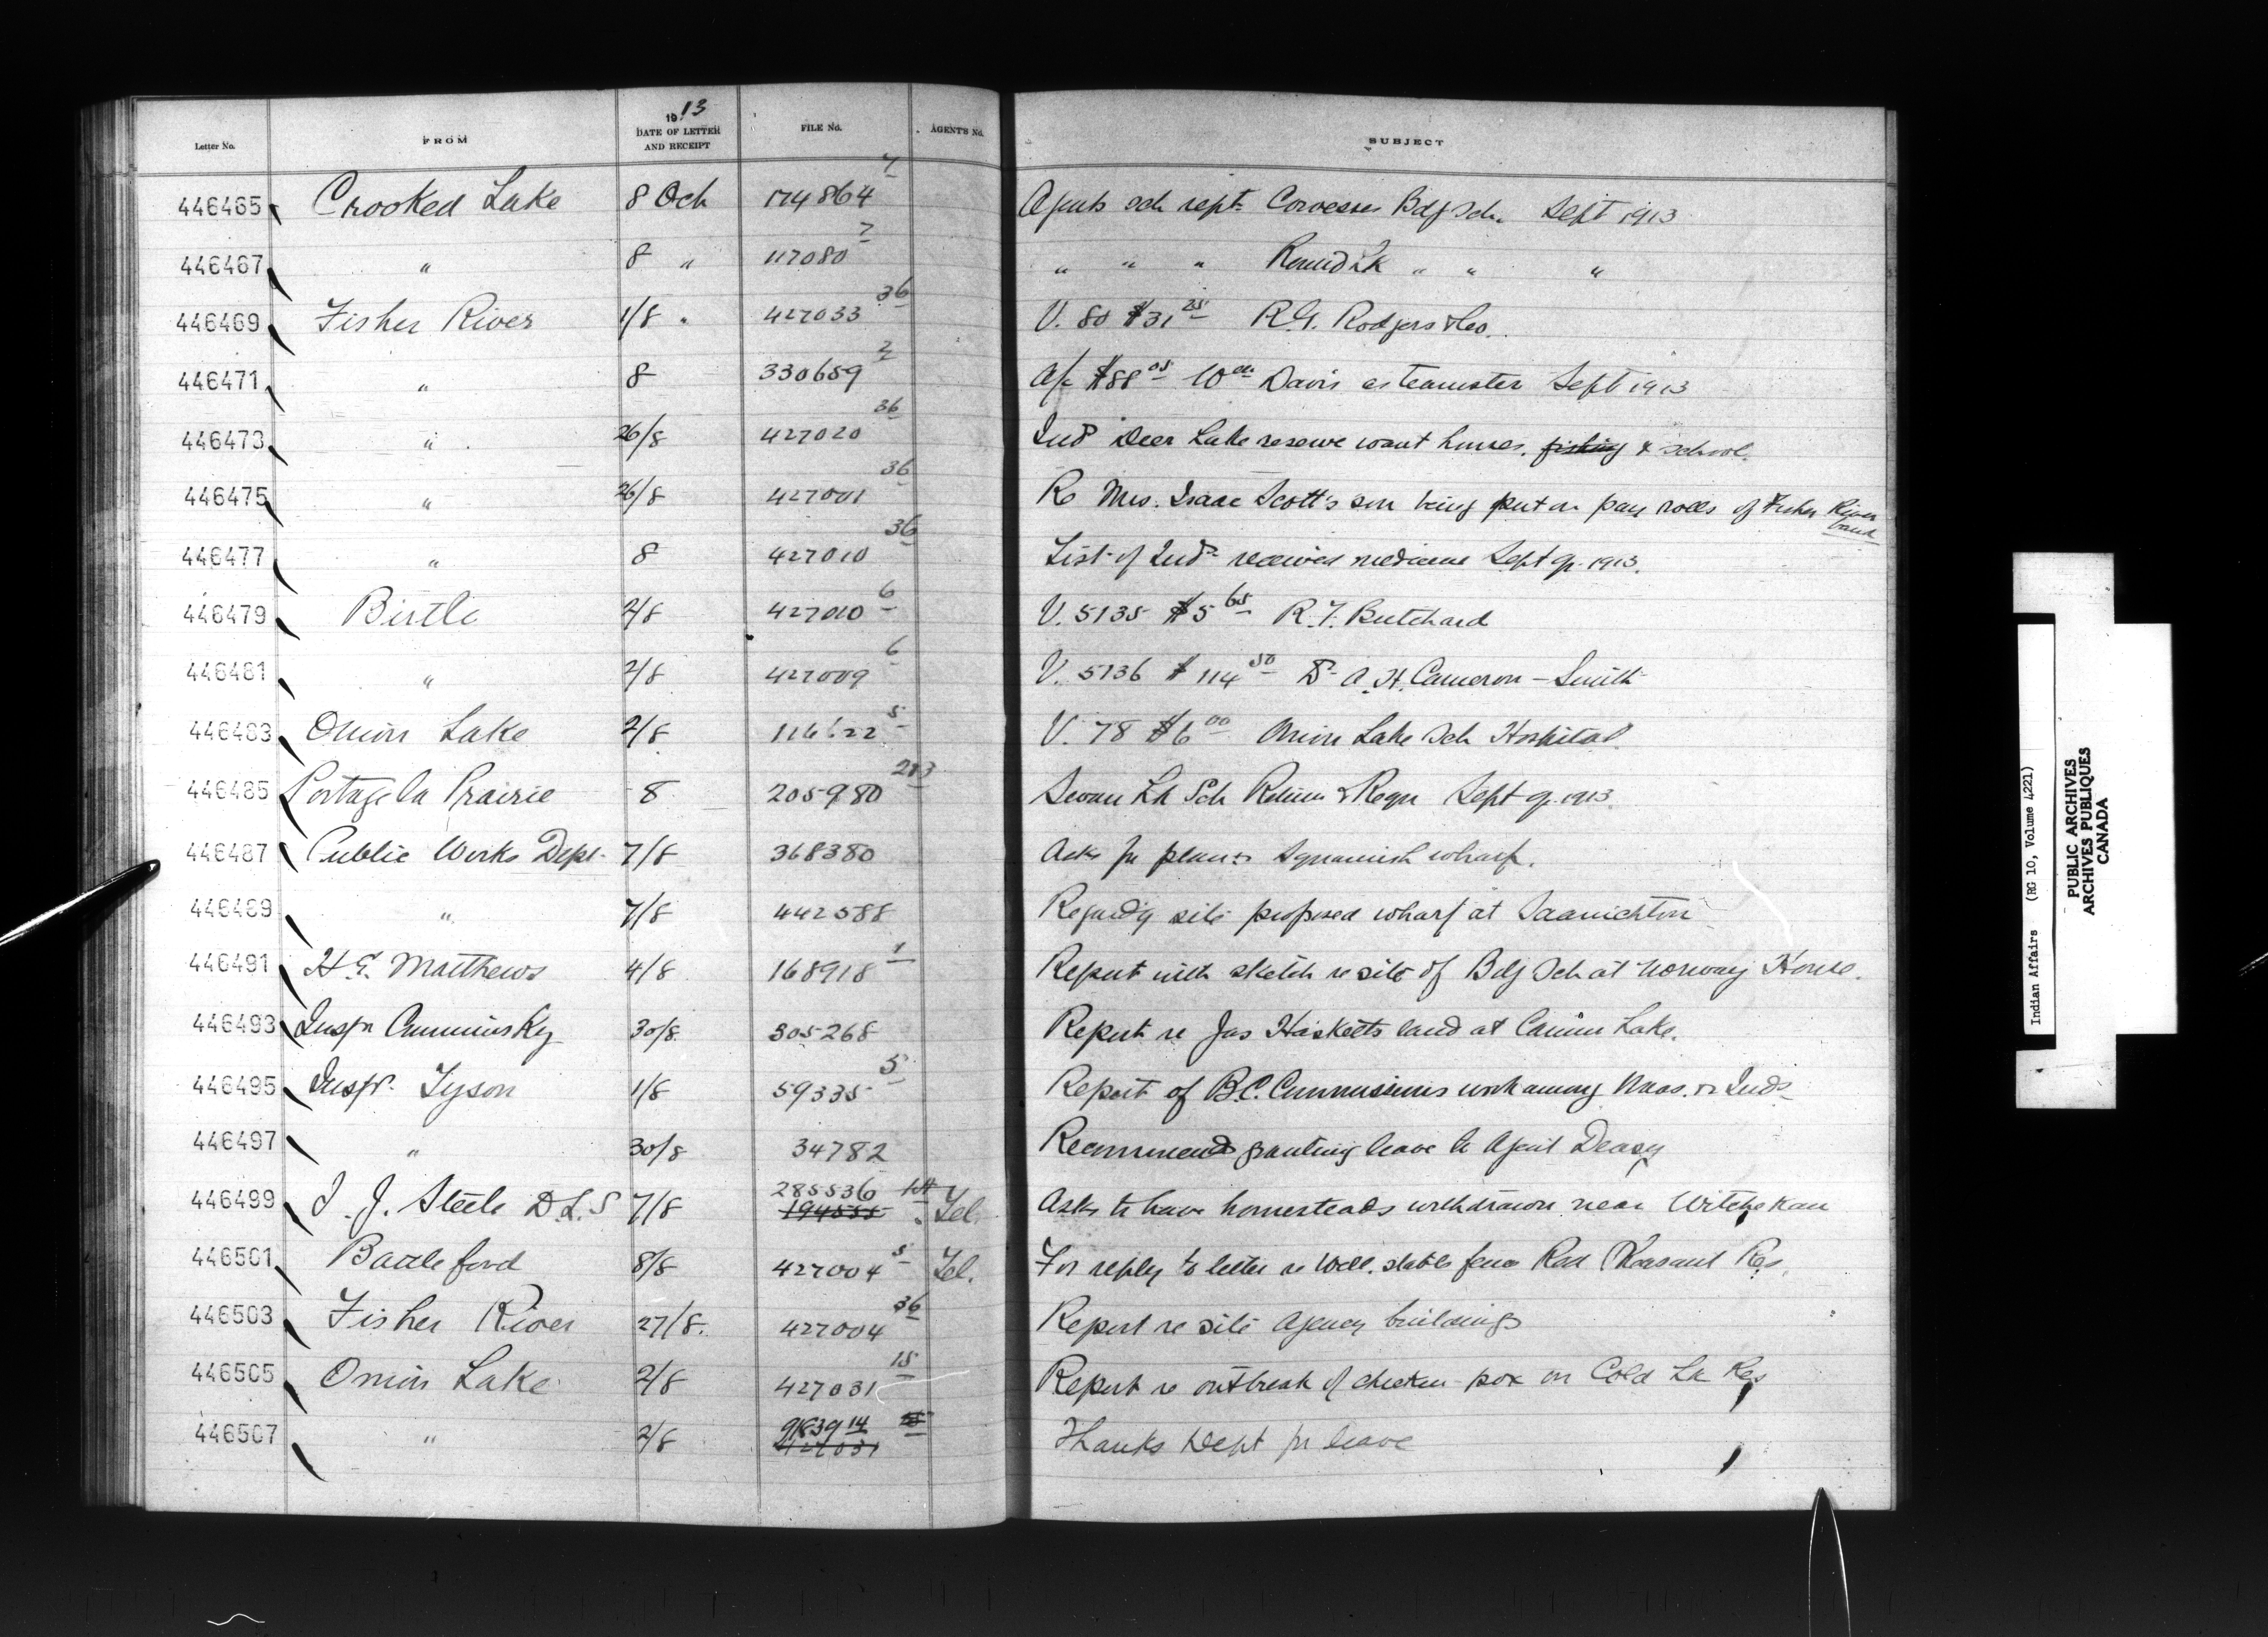 1913
Letter No. FROM DATE OF LETTER AND RECEIPT FILE No. AGENT'S No. SUBJECT
446465 Crooked Lake 8 Oct 174864 7 Agents sch rept. Cowesses Bdg Sch. Sept 1913
446467 " 8 " 117080 7 " " " Round Lk " " "
446469 Fisher River 1/8 " 427033 36 V. 80 $31 25 R.G. Rodgers & Co.
446471 " 8 330659 2 a/c $88 05 Wm Davis as teamster Sept 1913
446473 " 26/8 427020 36 Inds Deer Lake reserve want houses, fishing & school.
446475 " 26/8 427001 36 Re Mrs. Isaac Scott's son being put on pay rolls of Fisher River band
446477 " 8 427010 36 List of Inds received medicine Sept qr. 1913.
446479 Birtle 2/8 427010 6 V. 5135 $5 65 R.F. Butchard
446481 " 2/8 427009 6 V. 5136 $114 50 Dr A.H. Cameron-Smith
446483 Onion Lake 2/8 116622 5 V. 78 $6 00 Onion Lake Sch Hospital.
446485 Portage la Prairie 8 205980 Swan Lk Sch Return & Reqn Sept qr. 1913.
446487 Public Works Dept. 7/8 368380 Asks for plan Squamish wharf.
446489 " 7/8 442588 Regardg site proposed wharf at Saanichton
446491 H.E. Matthews 4/8 168918 1 Report with sketch re site of Bdg Sch at Norway House.
446493 Inspr Cummiskey 30/8 305268 Report re Jas Hasketts land at Lake.
446495 Inspr. Tyson 1/8 59335 5 Report of B.C. Commissions work among Naas. Inds
446497 " 30/8 34782 Recommends granting leave to Agent Deasy
446499 I. J. Steele D.L.S 7/8 285536 194555 Tel. Asks to have homesteads withdrawn near Witchekan
446501 Battleford 8/8 427004 5 Tel. For reply to letter re well, stable fence Red Pheasant Res.
446503 Fisher River 27/8. 427004 36 Report re site agency buildings
446505 Onion Lake 2/8 427031 15 Report re outbreak of chicken pox on Cold Lk Res
446507 " 2/8 91839 14 427031 15 Thanks Dept for leave
Indian Affairs (RG 10, Volume 4221)
PUBLIC ARCHIVES
ARCHIVES PUBLIQUES
CANADA